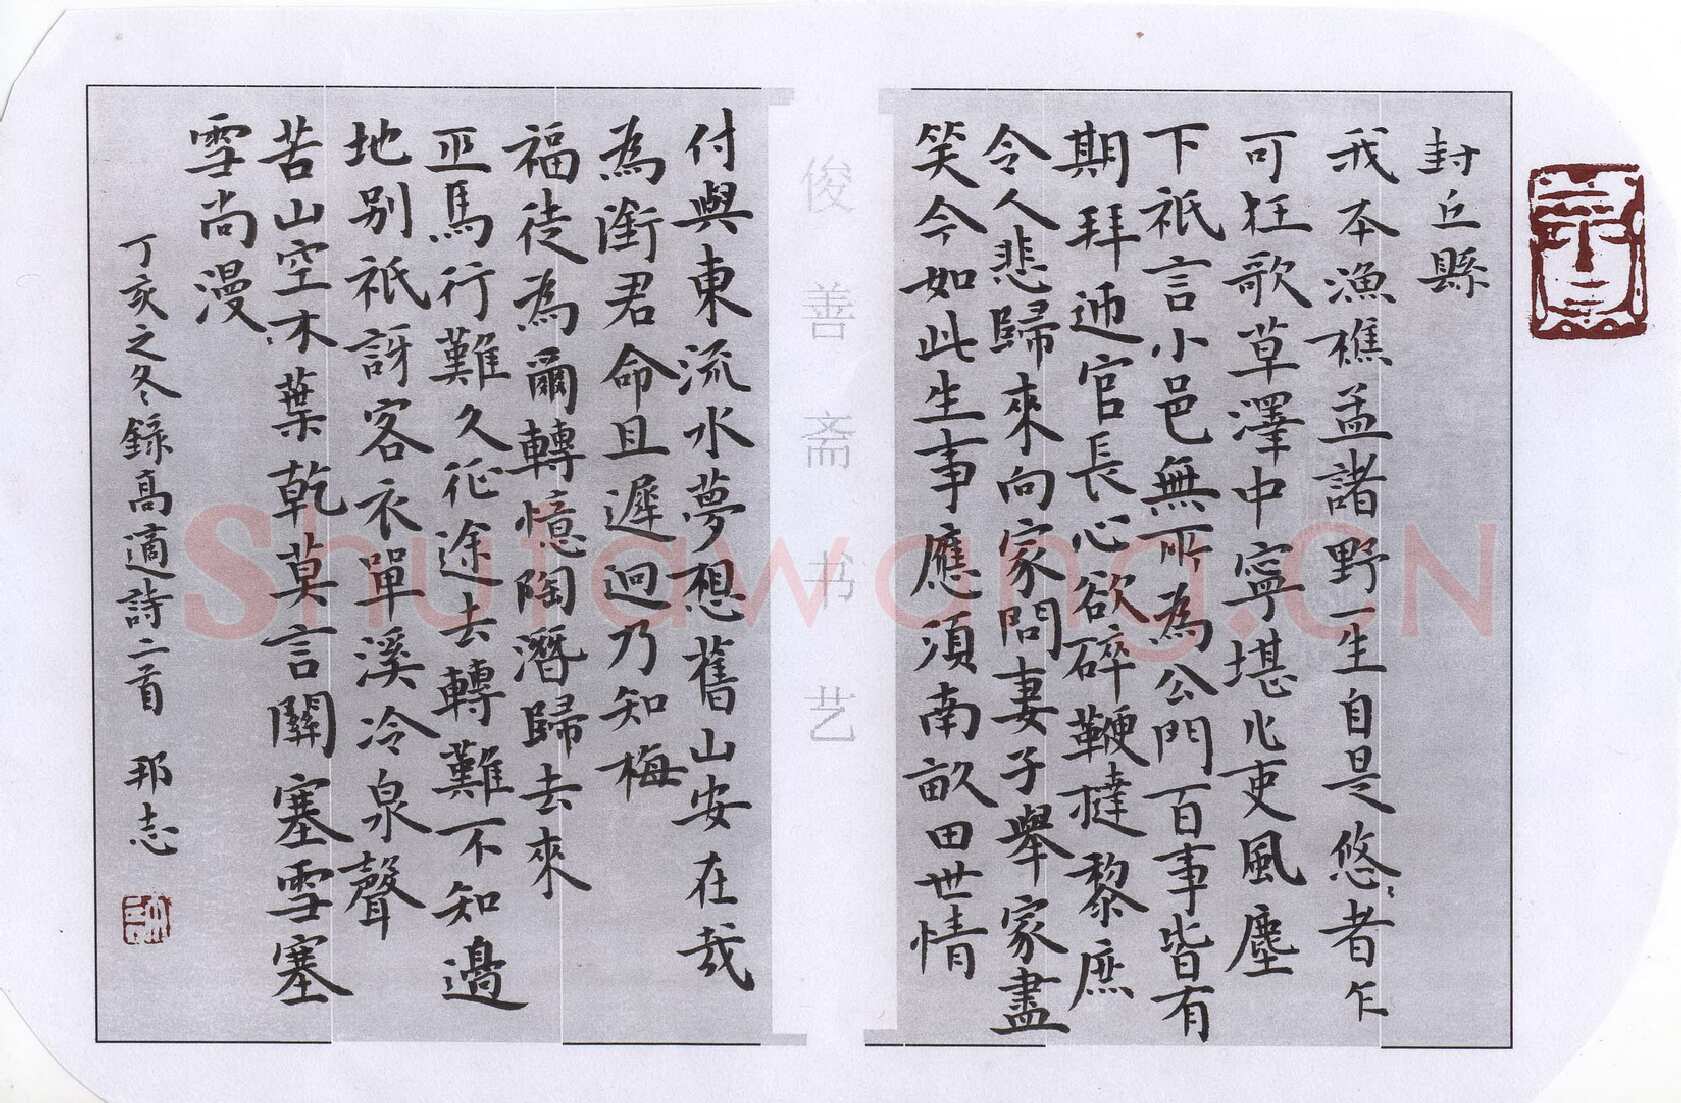 封丘縣
我本漁樵孟諸野一生自是悠々者乍
可狂歌草澤中寧堪作吏風塵
下祇言小邑無所為公門百事皆有
期拜迎官長心欲碎鞭撻黎庶
令人悲歸來向家問妻子舉家盡
笑今如此生事應須南畝田世情
付與東流水夢想舊山安在哉
為銜君命且遲迴乃知梅
福徒為爾轉憶陶潛歸去來
匹馬行難久征途去轉難不知邊
地別祇訝客衣單溪冷泉聲
苦山空木葉乾莫言關塞雪塞
雪尚漫
丁亥之冬々錄高適詩二首 邦志
俊善斋书艺
Shufawang.CN